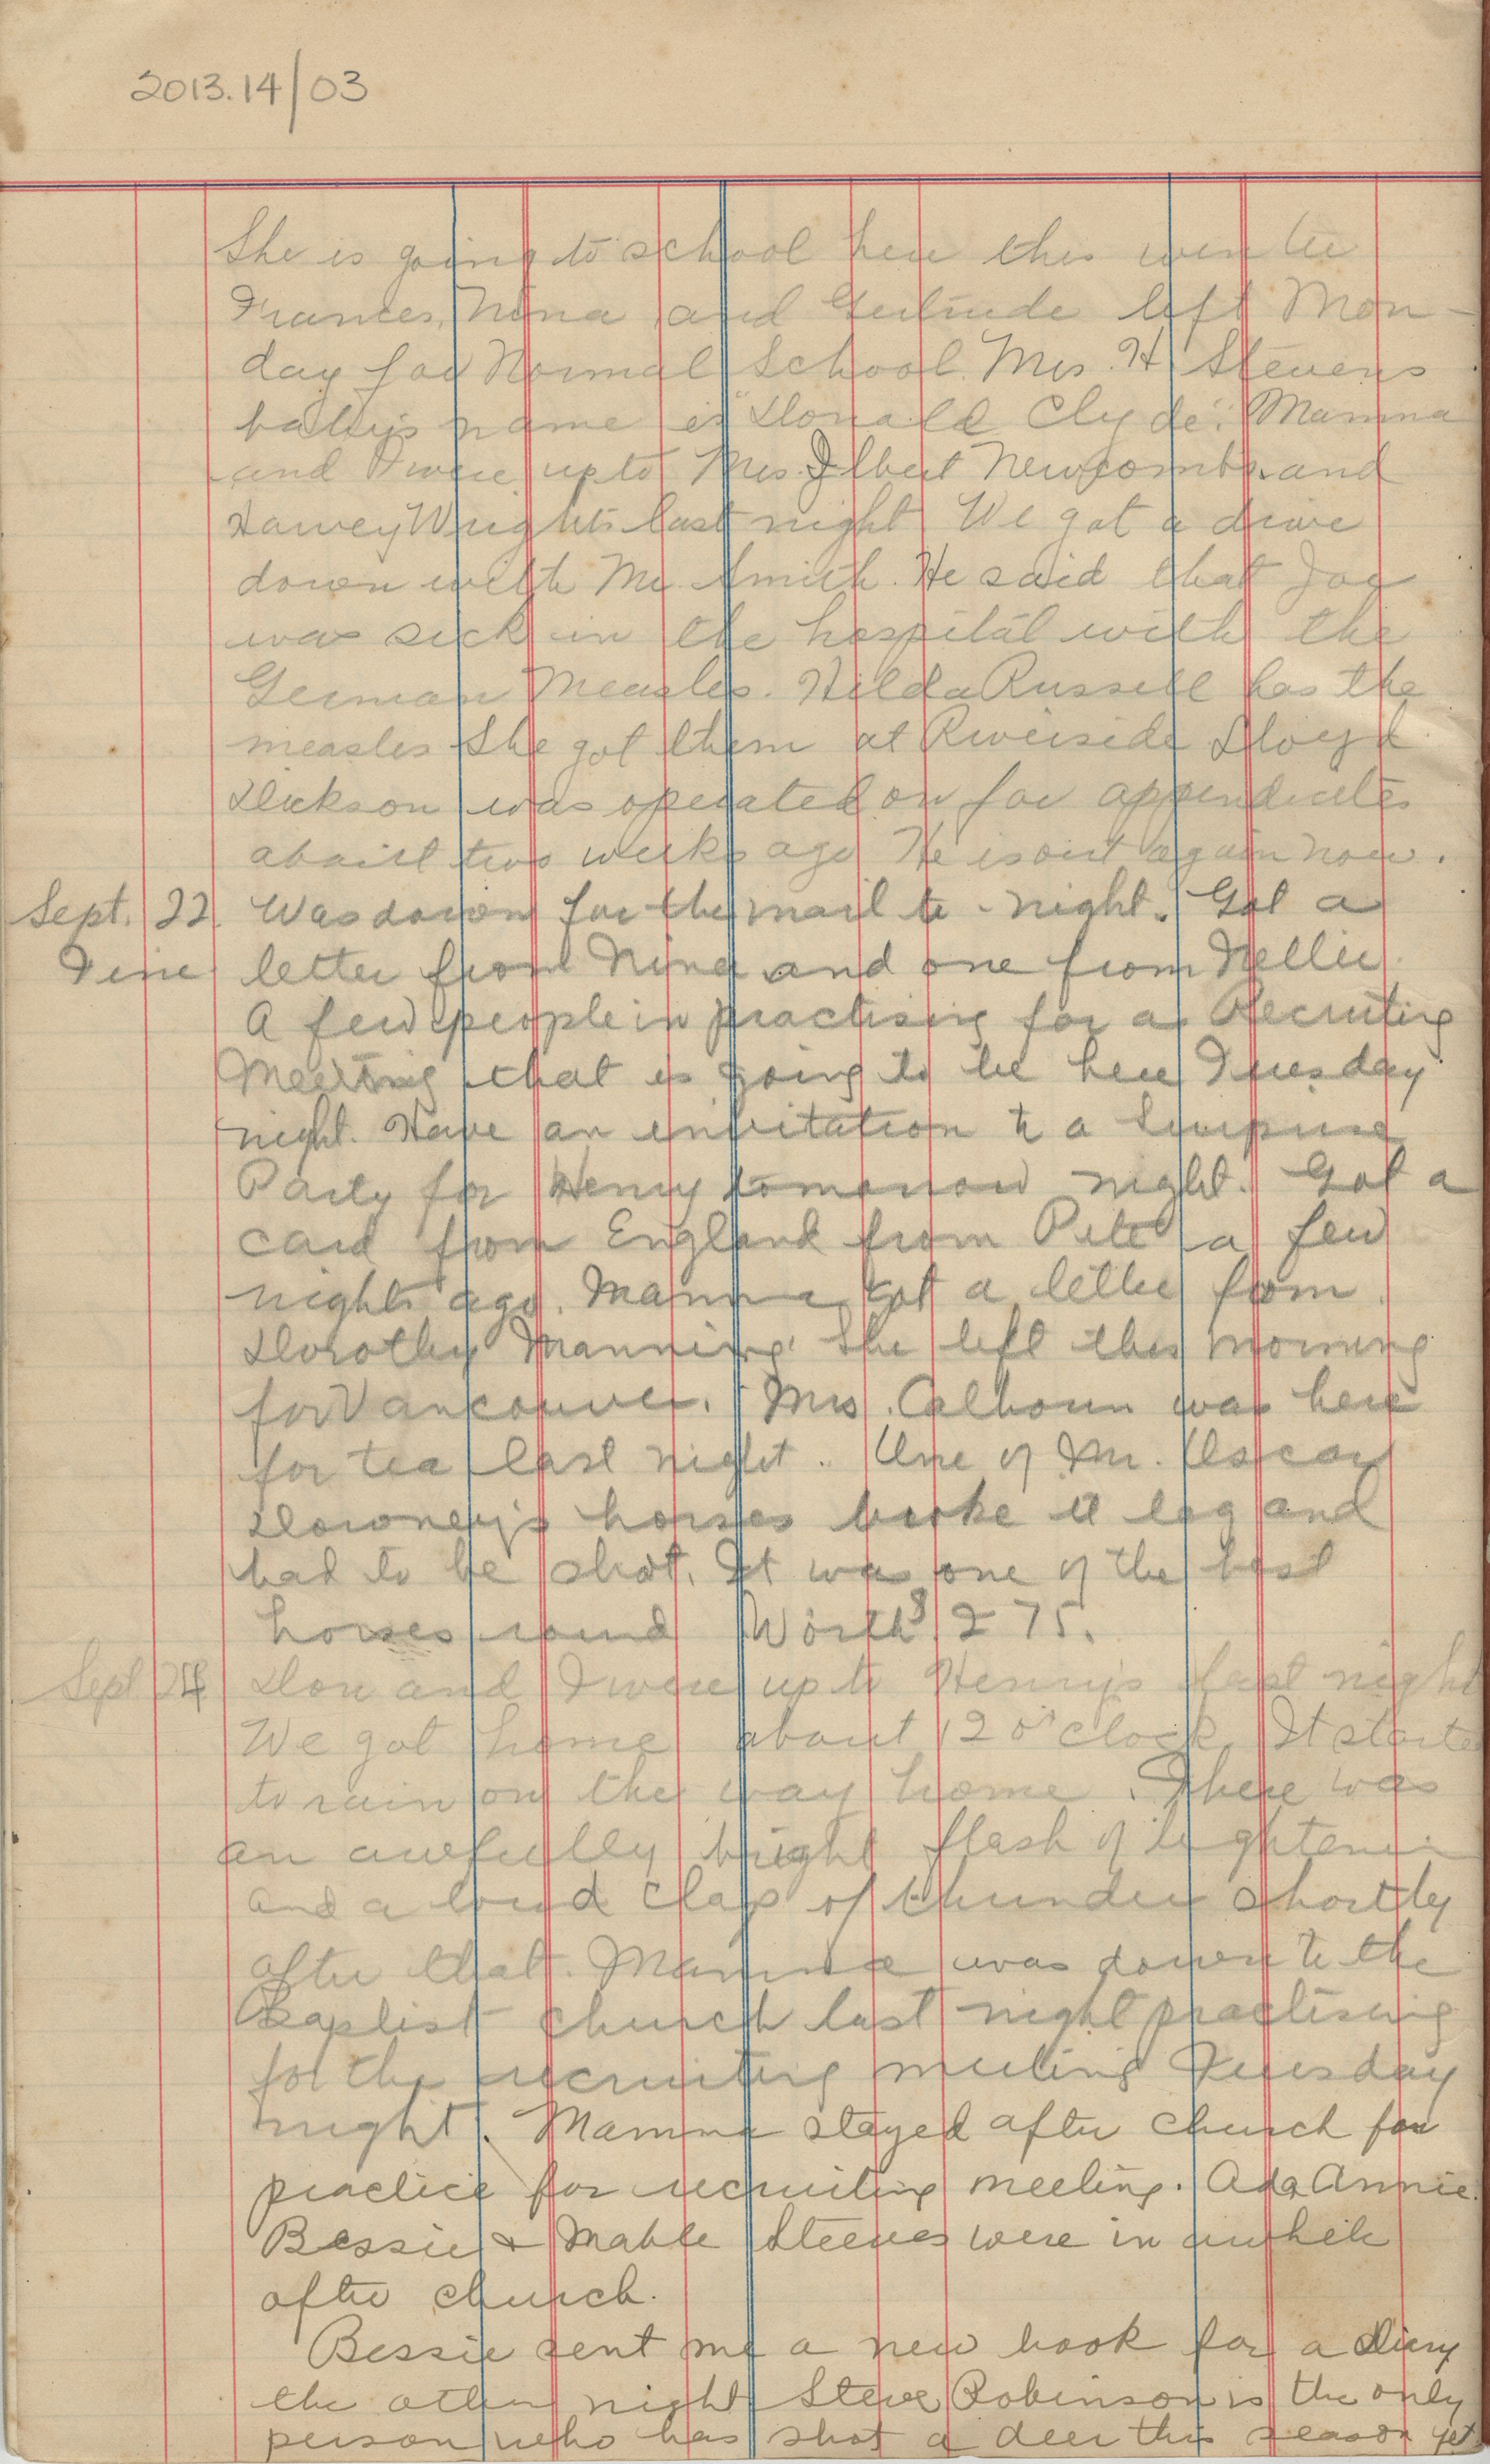 2013.14/03
She is going to school here this winter
Frances, Nina and Gertrude left Mon-
day for Normal School. Mrs. H. Stevens
baby's name is "Donald Clyde". Mamma
and I were up to Mrs. Albert Newcombs and
Harvey Wrights last night We got a drive
down with Mr. Smith. He said that Joe
was sick in the hospital with the
German Measles. Hilda Russell has the
measles She got them at Riverside Lloyd
Dickson was operated on for appendicites
about two weeks ago He is out again now.
Sept. 22. Was down for the mail to-night. Got a
Fine letter from Nina and one from Nellie.
A few people in practising for a Recruiting
Meeting that is going to be here Tuesday
night. Have an invitation to a Surprise
Party for Henry tomorrow night. Got a
card from England from Pete a few
nights ago. Mamma got a letter from
Dorothy Manning. She left this morning
for Vancouver. Mrs. Calhoun was here
for tea last night. One of Mr. Oscar
Downey's horses broke it leg and
had to be shot. It was one of the best
horses round Worth $275.
Sept 24 Don and I were up to Henry's last night
We got home about 12 o'clock. It started
to rain on the way home. There was
an awefully bright flash of lightenin
and a loud clap of thunder shortly
after that. Mamma was down to the
Baptist church last night practising
for the recruiting meeting Tuesday
night. Mamma stayed after church for
practice for recruiting meeting. Ada, Annie.
Bessie & Mable Steeves were in awhile
after church.
Bessie sent me a new book for a Diery
the other night Steve Robinson is the only
person who has shot a deer this season yet